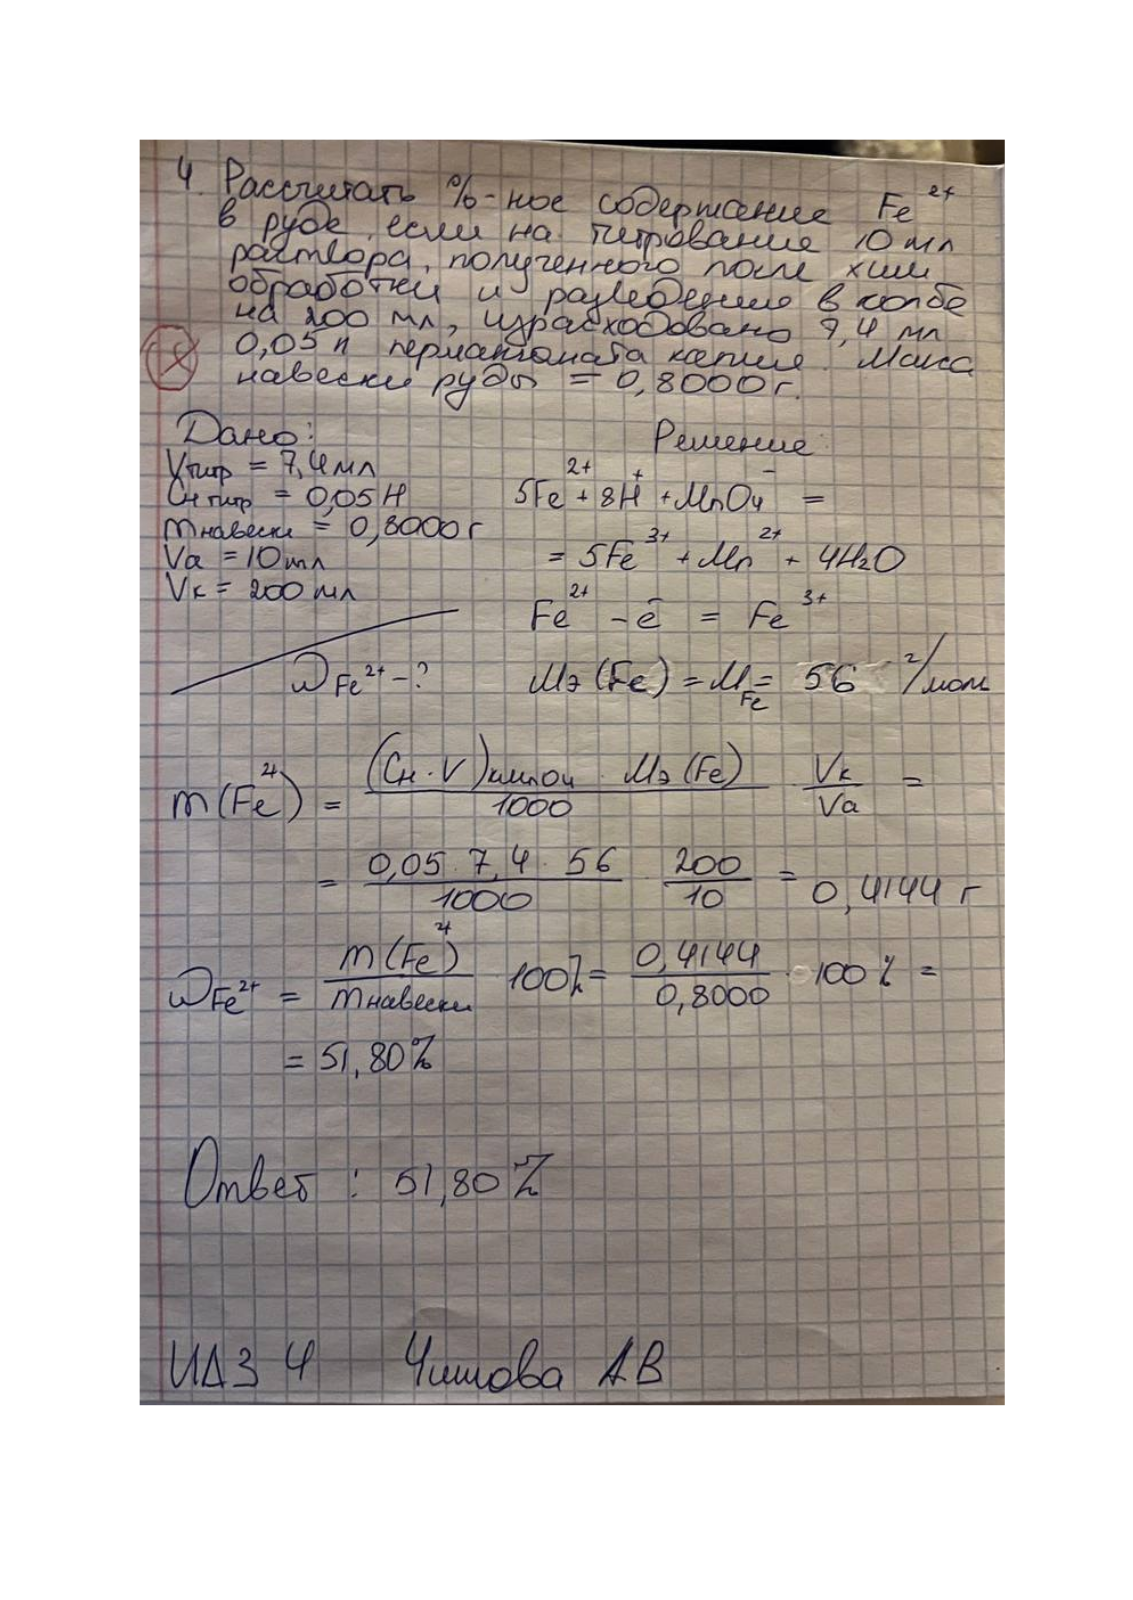 4. Рассчитать %-ное содержание Fe²⁺
в руде, если на титрование 10 мл
раствора, полученного после хим
обработки и разведения в колбе
на 200 мл, израсходовано 7,4 мл
0,05 н перманганата калия. Масса
навески руды = 0,8000 г.
Дано: Решение:
Vтитр = 7,4 мл
Cн титр = 0,05 Н 5Fe²⁺ + 8H⁺ + MnO₄⁻ =
mнавески = 0,8000 г
Va = 10 мл = 5Fe³⁺ + Mn²⁺ + 4H₂O
Vк = 200 мл
Fe²⁺ - ē = Fe³⁺
ω Fe²⁺ - ? Mэ (Fe) = M Fe = 56 г/моль
m(Fe²⁺) = (Cн · V)KMnO4 · Mэ (Fe) / 1000 · Vк / Va =
= 0,05 · 7,4 · 56 / 1000 · 200 / 10 = 0,4144 г
ω Fe²⁺ = m(Fe²⁺) / mнавески · 100% = 0,4144 / 0,8000 · 100% =
= 51,80%
Ответ : 51,80%
ИДЗ 4 АВ